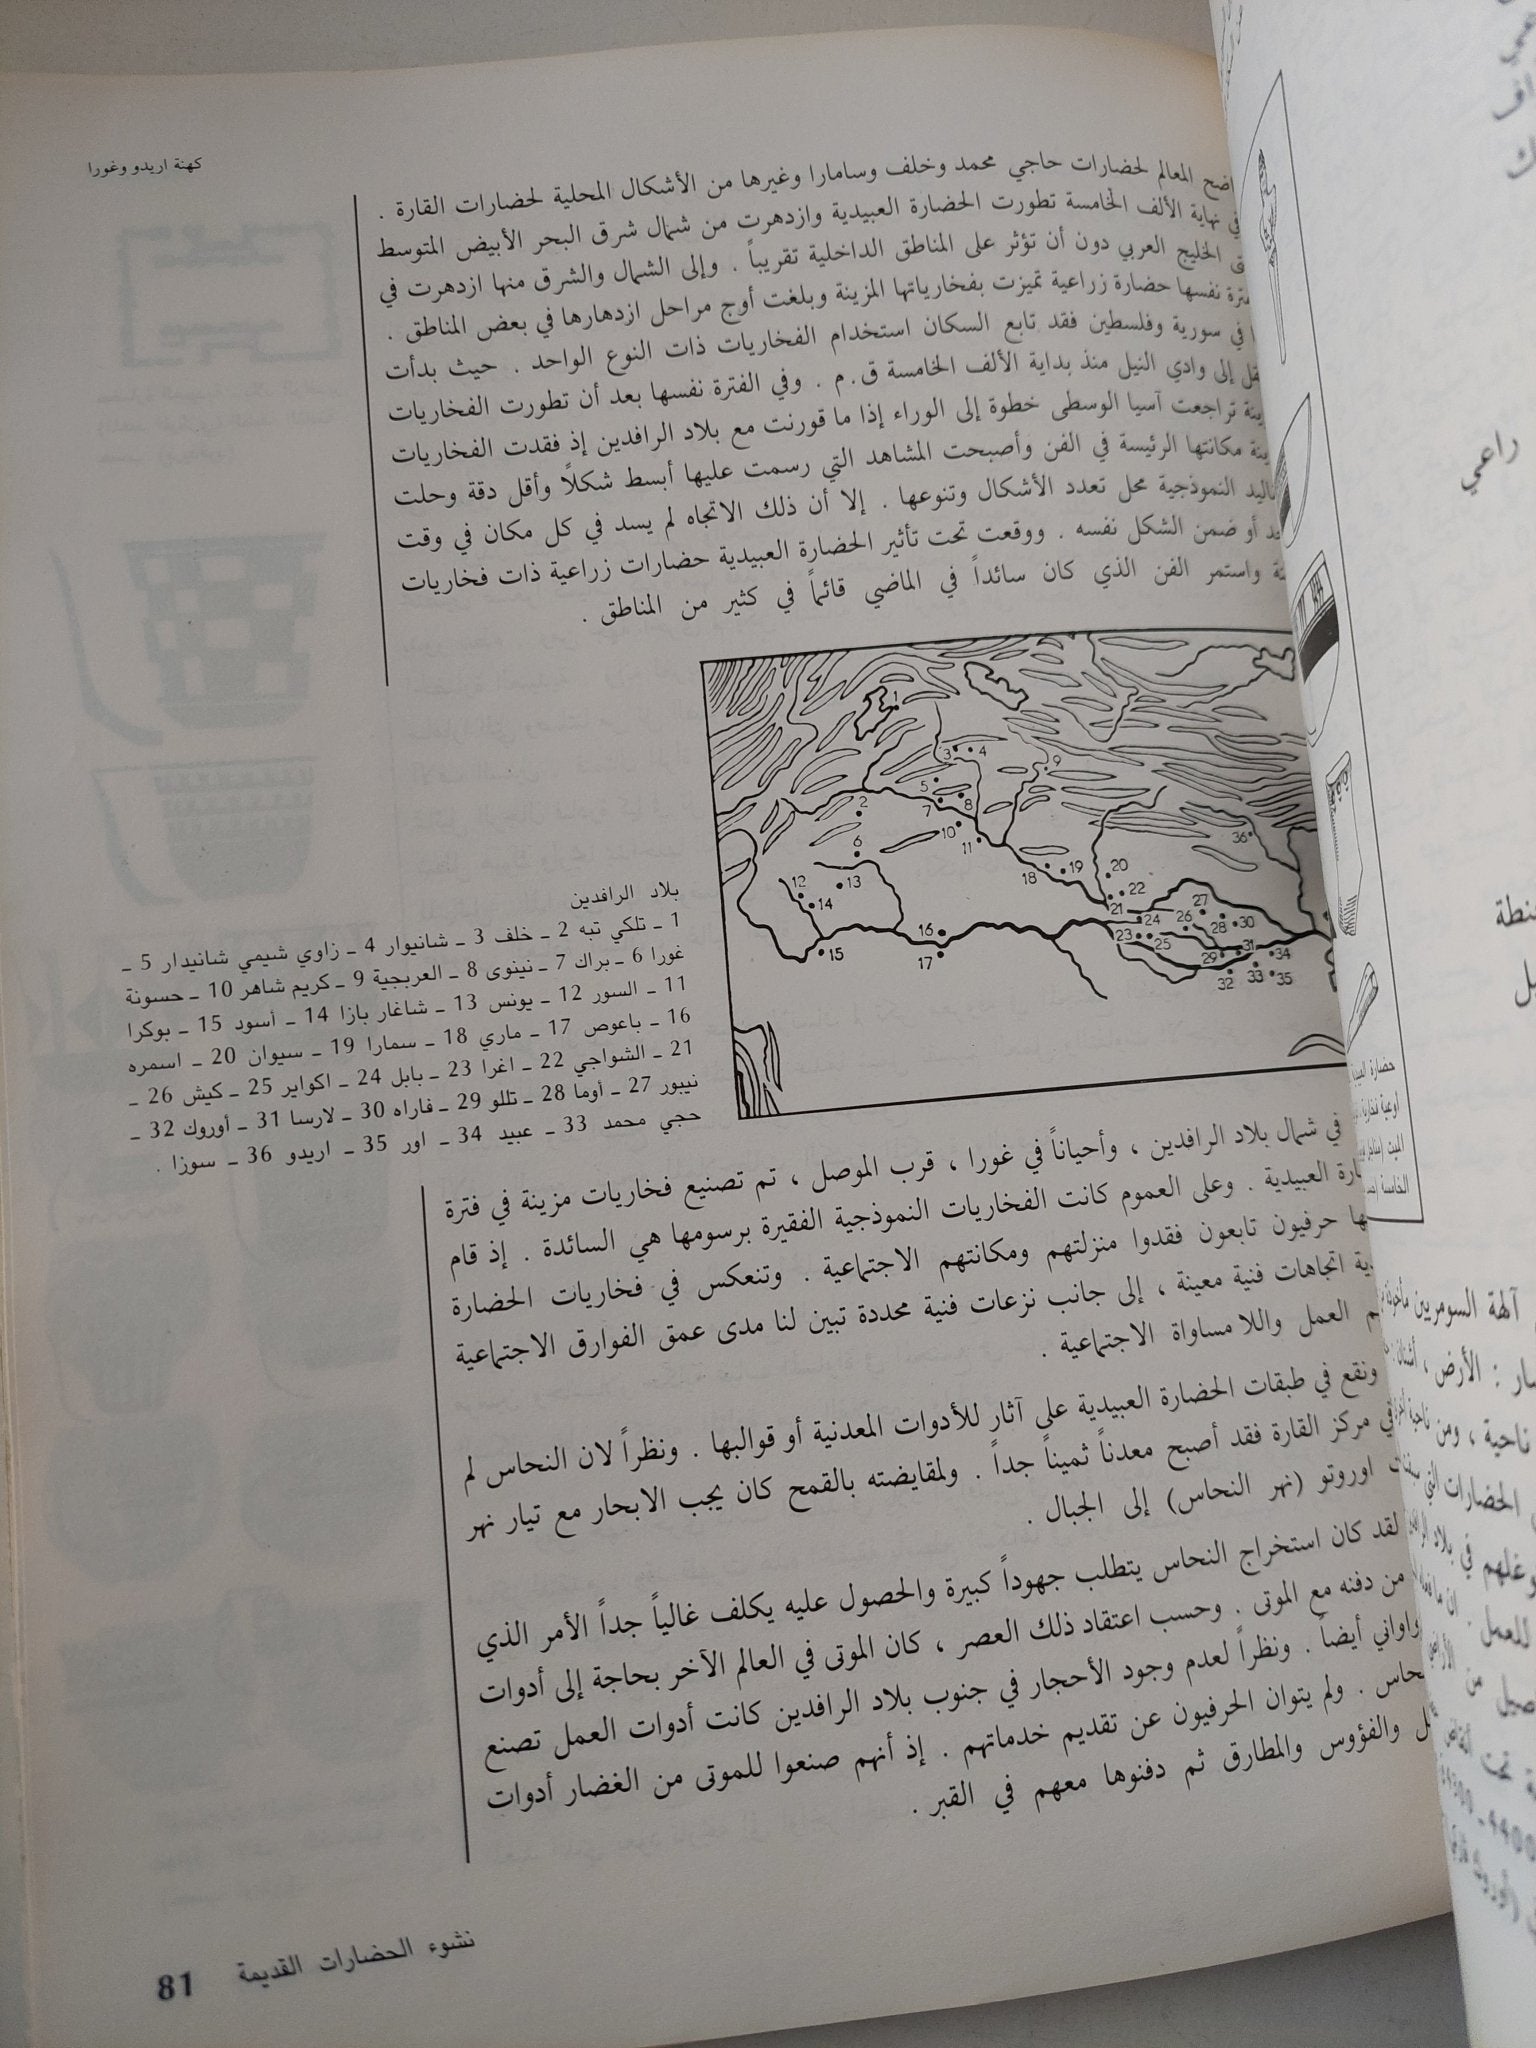 كهنة اريدو وغورا
المعالم لحضارات حاجي محمد وخلف وسامارا وغيرها من الأشكال المحلية لحضارات القارة .
في نهاية الألف الخامسة تطورت الحضارة العبيدية وازدهرت من شمال شرق البحر الأبيض المتوسط
الخليج العربي دون أن تؤثر على المناطق الداخلية تقريباً . وإلى الشمال والشرق منها ازدهرت في
نفسها حضارة زراعية تميزت بفخارياتها المزينة وبلغت أوج مراحل ازدهارها في بعض المناطق .
في سورية وفلسطين فقد تابع السكان استخدام الفخاريات ذات النوع الواحد . حيث بدأت
إلى وادي النيل منذ بداية الألف الخامسة ق . م . وفي الفترة نفسها بعد أن تطورت الفخاريات
تراجعت آسيا الوسطى خطوة إلى الوراء إذا ما قورنت مع بلاد الرافدين إذ فقدت الفخاريات
مكانتها الرئيسة في الفن وأصبحت المشاهد التي رسمت عليها أبسط شكلاً وأقل دقة وحلت
النموذجية محل تعدد الأشكال وتنوعها . إلا أن ذلك الاتجاه لم يسد في كل مكان في وقت
أو ضمن الشكل نفسه . ووقعت تحت تأثير الحضارة العبيدية حضارات زراعية ذات فخاريات
واستمر الفن الذي كان سائداً في الماضي قائماً في كثير من المناطق .
1
3 4
9
5
2 7 8
10
36
6 11
12 13 18 19 20
14 21 22 27
24 26 28 30
16 23 25 31
15 17 29 34
32 33 35
بلاد الرافدين
1 ـ تلكي تبه 2 ـ خلف 3 ـ شانيوار 4 ـ زاوي شيمي شانيدار 5 ـ
غورا 6 ـ براك 7 ـ نينوى 8 ـ العربجية 9 ـ كريم شاهر 10 ـ حسونة
11 ـ السور 12 ـ يونس 13 ـ شاغار بازا 14 ـ أسود 15 ـ بوكرا
16 ـ باعوص 17 ـ ماري 18 ـ سمارا 19 ـ سيوان 20 ـ اسمره
21 ـ الشواجي 22 ـ اغرا 23 ـ بابل 24 ـ اكواير 25 ـ كيش 26 ـ
نيبور 27 ـ أوما 28 ـ تللو 29 ـ فاراه 30 ـ لارسا 31 ـ أوروك 32 ـ
حجي محمد 33 ـ عبيد 34 ـ اور 35 ـ اريدو 36 ـ سوزا .
في شمال بلاد الرافدين ، وأحياناً في غورا ، قرب الموصل ، تم تصنيع فخاريات مزينة في فترة
العبيدية . وعلى العموم كانت الفخاريات النموذجية الفقيرة برسومها هي السائدة . إذ قام
حرفيون تابعون فقدوا منزلتهم ومكانتهم الاجتماعية . وتنعكس في فخاريات الحضارة
اتجاهات فنية معينة ، إلى جانب نزعات فنية محددة تبين لنا مدى عمق الفوارق الاجتماعية
العمل واللا مساواة الاجتماعية .
ونقع في طبقات الحضارة العبيدية على آثار للأدوات المعدنية أو قوالبها . ونظراً لان النحاس لم
في مركز القارة فقد أصبح معدناً ثميناً جداً . ولمقايضته بالقمح كان يجب الابحار مع تيار نهر
اوروتو (نهر النحاس) إلى الجبال .
لقد كان استخراج النحاس يتطلب جهوداً كبيرة والحصول عليه يكلف غالياً جداً الأمر الذي
من دفنه مع الموتى . وحسب اعتقاد ذلك العصر ، كان الموتى في العالم الآخر بحاجة إلى أدوات
أيضاً . ونظراً لعدم وجود الأحجار في جنوب بلاد الرافدين كانت أدوات العمل تصنع
ولم يتوان الحرفيون عن تقديم خدماتهم . إذ أنهم صنعوا للموتى من الغضار أدوات
والفؤوس والمطارق ثم دفنوها معهم في القبر .
نشوء الحضارات القديمة 81
راعي
آلهة السومريين
: الأرض ،
ناحية ، ومن
الحضارات التي
للعمل .